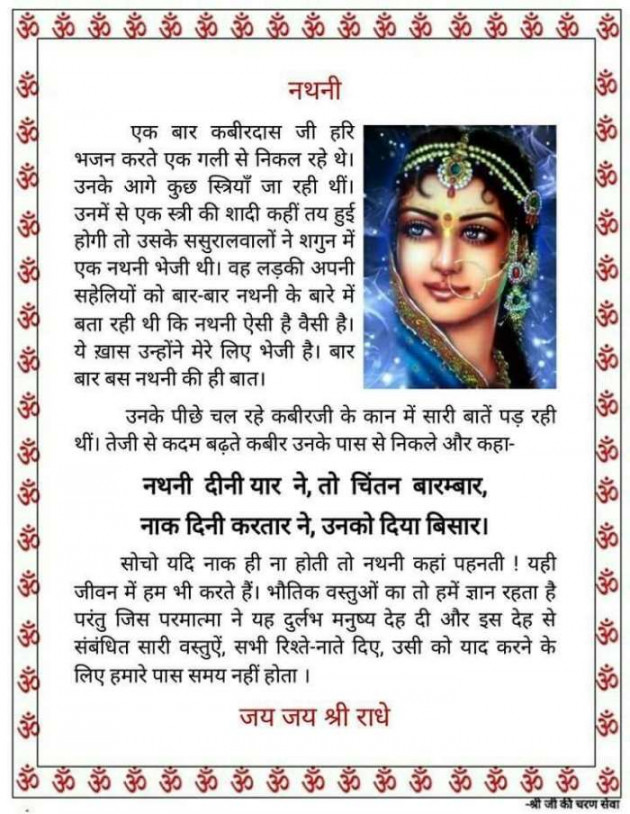 नथनी
एक बार कबीरदास जी हरि
भजन करते एक गली से निकल रहे थे।
उनके आगे कुछ स्त्रियाँ जा रही थीं।
उनमें से एक स्त्री की शादी कहीं तय हुई
होगी तो उसके ससुरालवालों ने शगुन में
एक नथनी भेजी थी। वह लड़की अपनी
सहेलियों को बार-बार नथनी के बारे में
बता रही थी कि नथनी ऐसी है वैसी है।
ये ख़ास उन्होंने मेरे लिए भेजी है। बार
बार बस नथनी की ही बात।
उनके पीछे चल रहे कबीरजी के कान में सारी बातें पड़ रही
थीं। तेजी से कदम बढ़ते कबीर उनके पास से निकले और कहा-
नथनी दीनी यार ने, तो चिंतन बारम्बार,
नाक दिनी करतार ने, उनको दिया बिसार।
सोचो यदि नाक ही ना होती तो नथनी कहां पहनती ! यही
जीवन में हम भी करते हैं। भौतिक वस्तुओं का तो हमें ज्ञान रहता है
परंतु जिस परमात्मा ने यह दुर्लभ मनुष्य देह दी और इस देह से
संबंधित सारी वस्तुऐं, सभी रिश्ते-नाते दिए, उसी को याद करने के
लिए हमारे पास समय नहीं होता ।
जय जय श्री राधे
-श्री जी की चरण सेवा